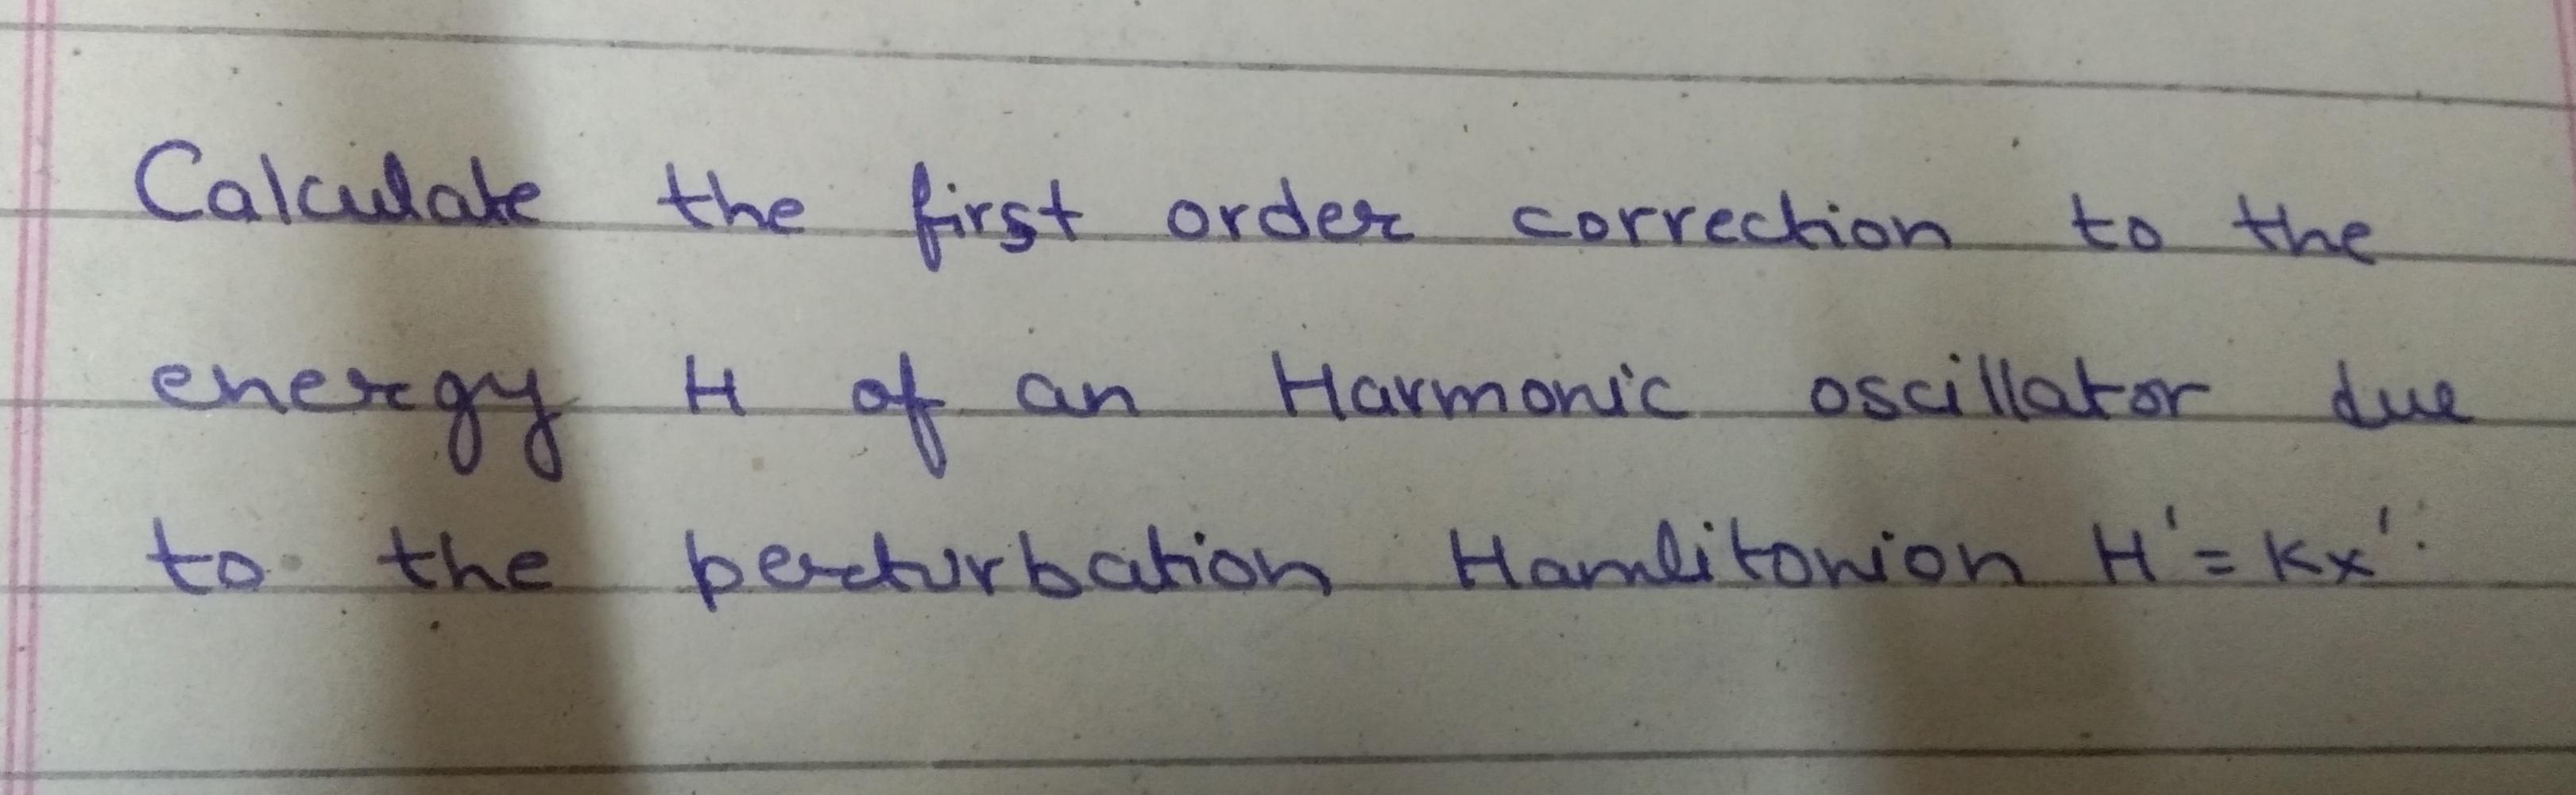 Calculate the first order correction to the
energy H of an Harmonic oscillator due
to the perturbation Hamlitonion H' = Kx'.